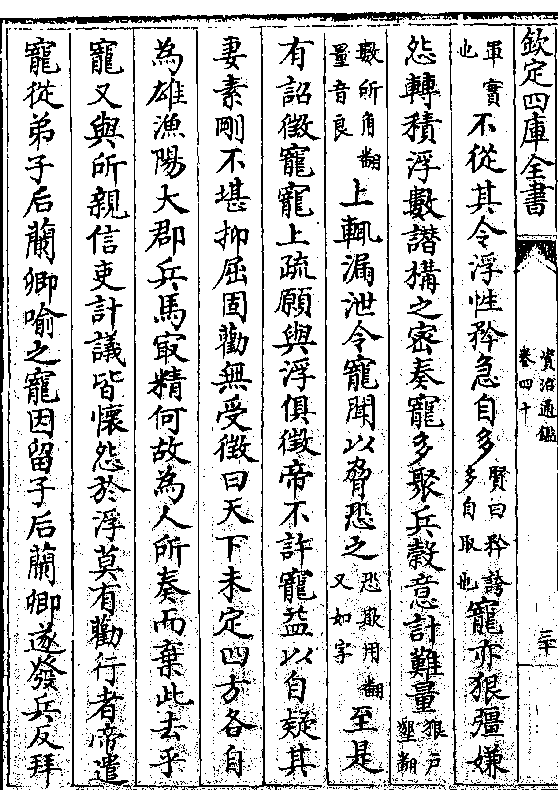 欽定四庫全書
資治通鑑
卷四十
三十
軍實
也
不從其令浮性矜急自多
賢曰矜誇
多自取也
寵亦狠彊嫌
怨轉積浮數譖構之密奏寵多聚兵穀意計難量
狠戶
墾翻
數所角翻
量音良
上輒漏泄令寵聞以脅恐之
恐欺用翻
又如字
至是
有詔徵寵寵上疏願與浮俱徵帝不許寵益以自疑其
妻素剛不堪抑屈固勸無受徵曰天下未定四方各自
為雄漁陽大郡兵馬㝡精何故為人所奏而棄此去乎
寵又與所親信吏計議皆懷怨於浮莫有勸行者帝遣
寵從弟子后蘭卿喻之寵因留子后蘭卿遂發兵反拜